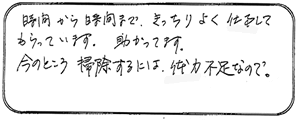 時間から時間まで、きっちりよく仕事して
もらっています。助かってます。
今のところ掃除するには、体力不足なので。